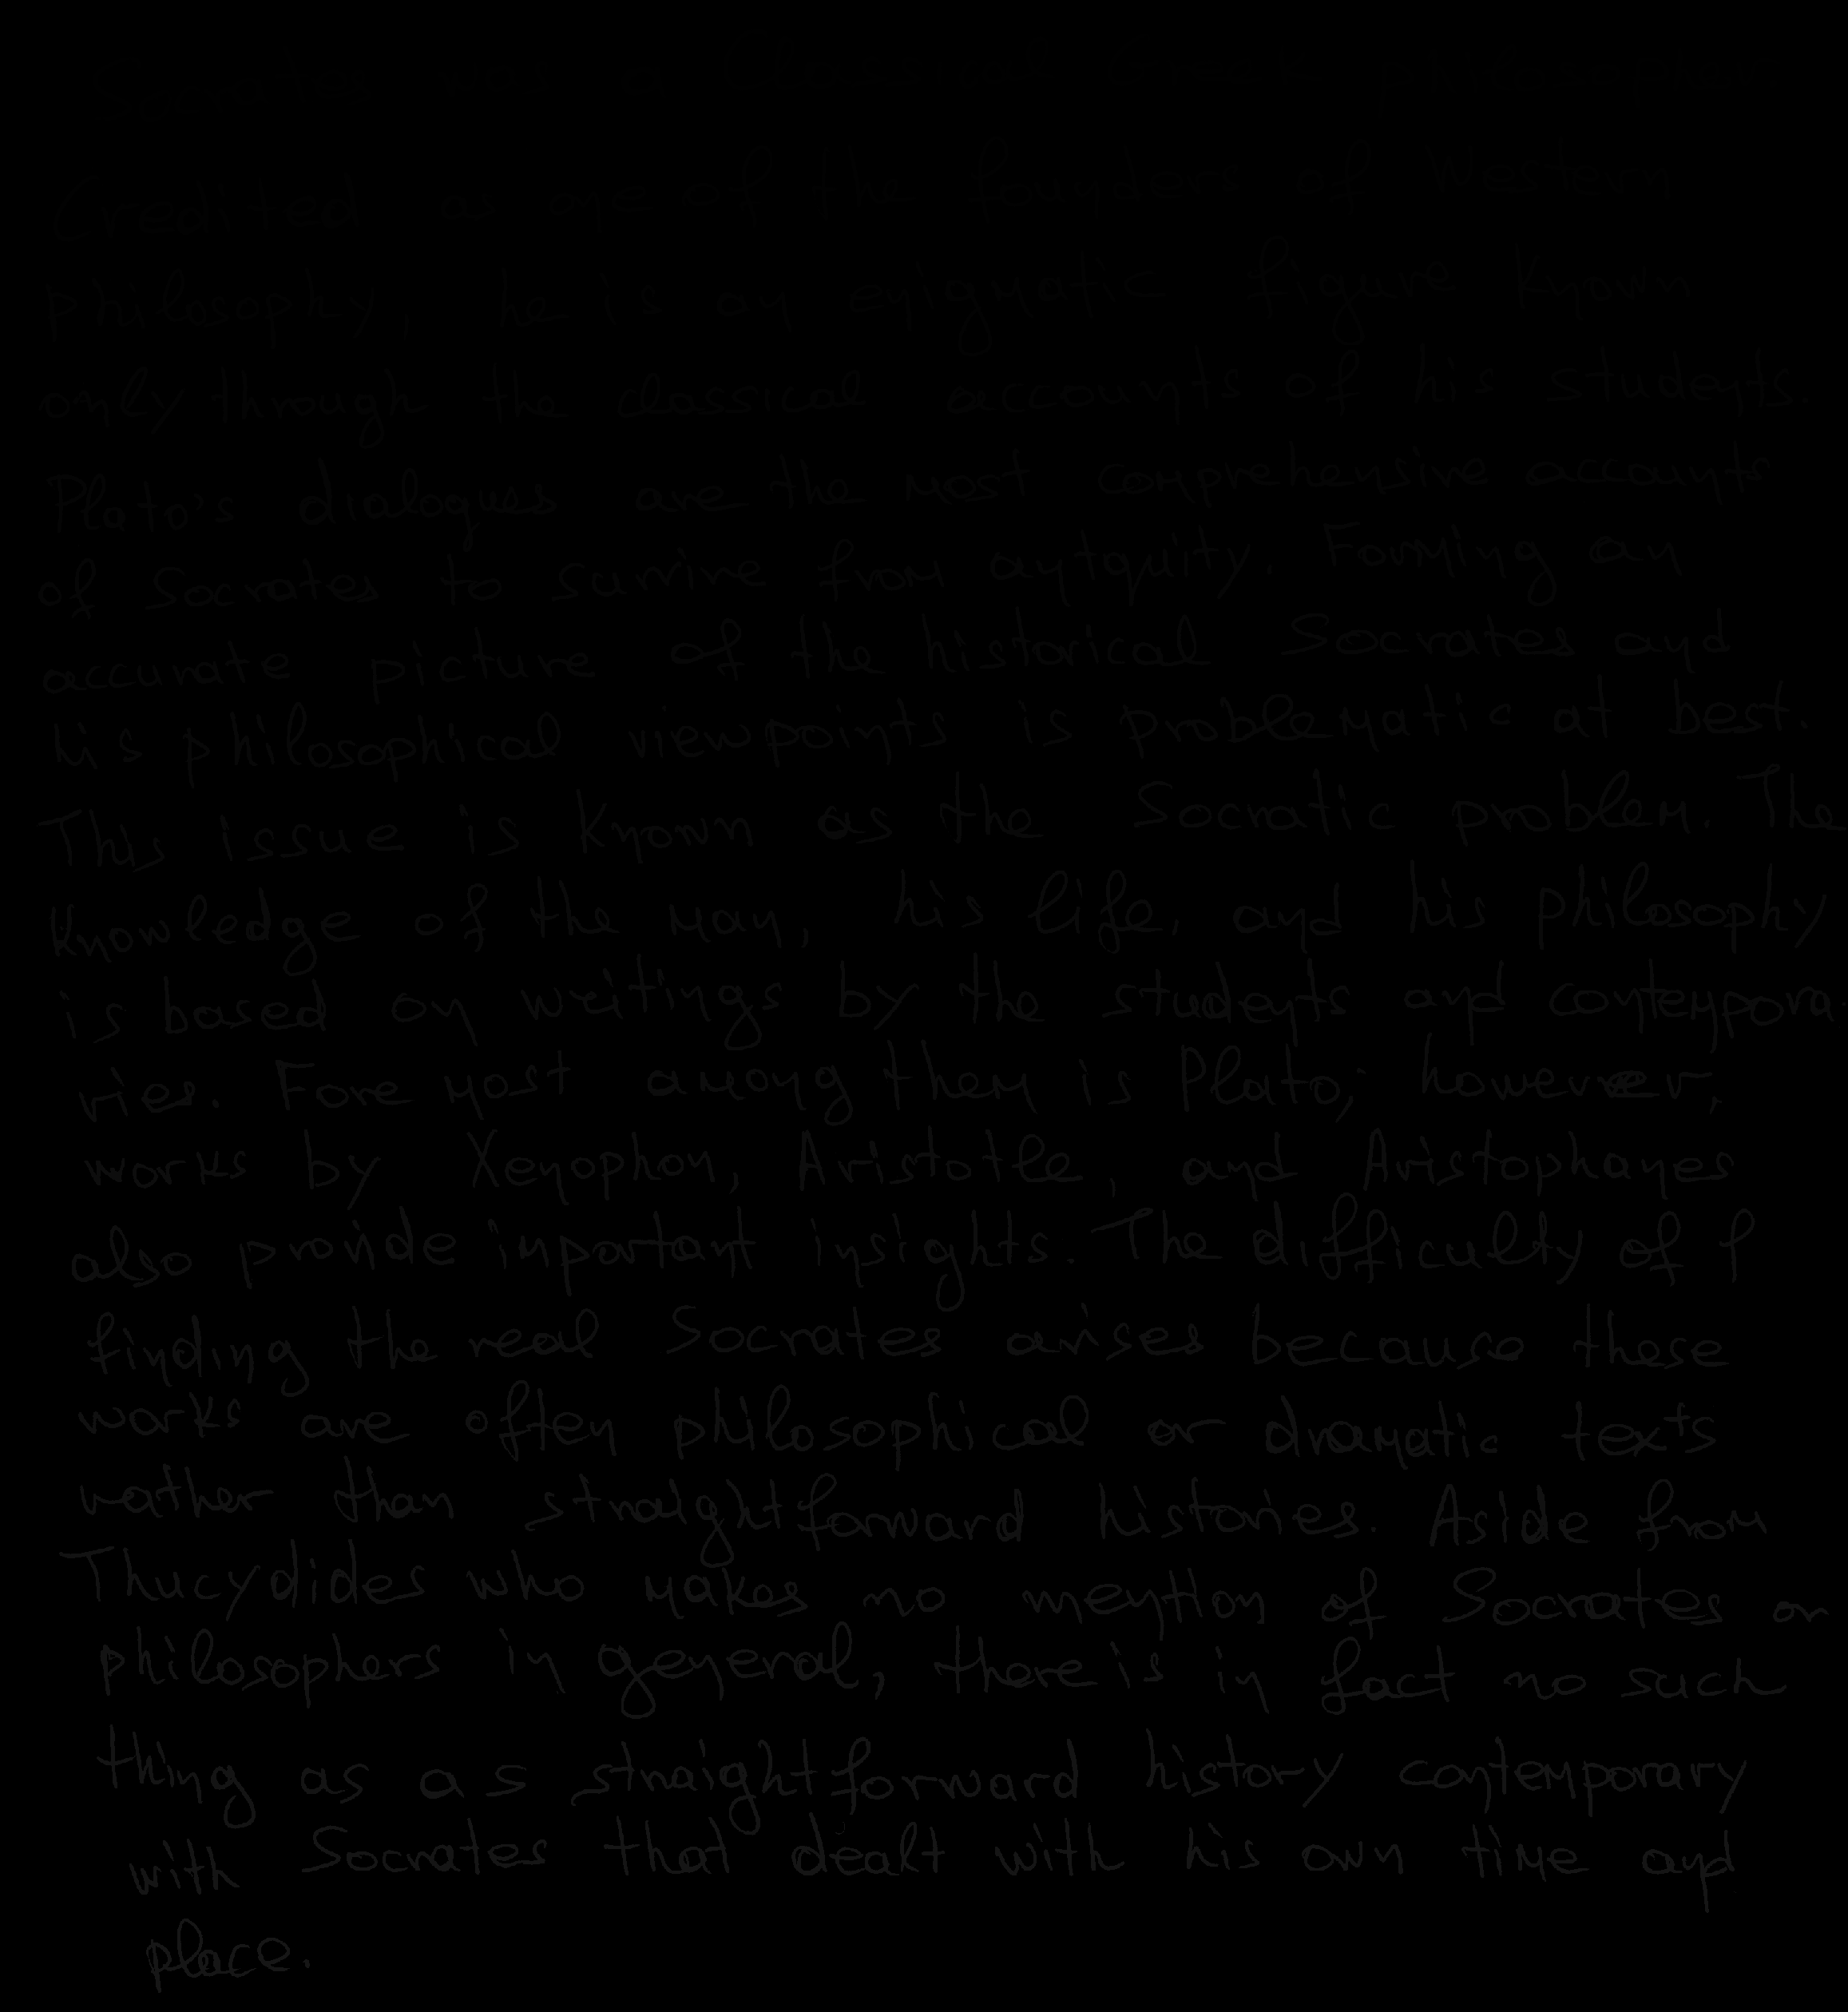 Socrates was a classical Greek philosopher.
Credited as one of the founders of Western
philosophy, he is an enigmatic figure known
only through the classical accounts of his students.
Plato's dialogues are the most comprehensive accounts
of Socrates to survive from antquity. Forming an
accurate picture of the historical Socrates and
his philosophical viewpoints is problematic at best.
This issue is known as the Socratic problem. The
knowledge of the man, his life, and his philosophy
is based on writings by the students and contempora
ries. Fore most among them is Plato; however,
works by Xenophon, Aristotle, and Aristophanes
also provide important insights. The difficulty of f
finding the real Socrates arises because these
works are often philosophical or dramatic texts
rather than straightforward histories. Aside from
Thucydides who makes no mention of Socrates or
philosophers in general, there is in fact no such
thing as as straightforward history contemporary
with Socrates that dealt with his own time and
place.